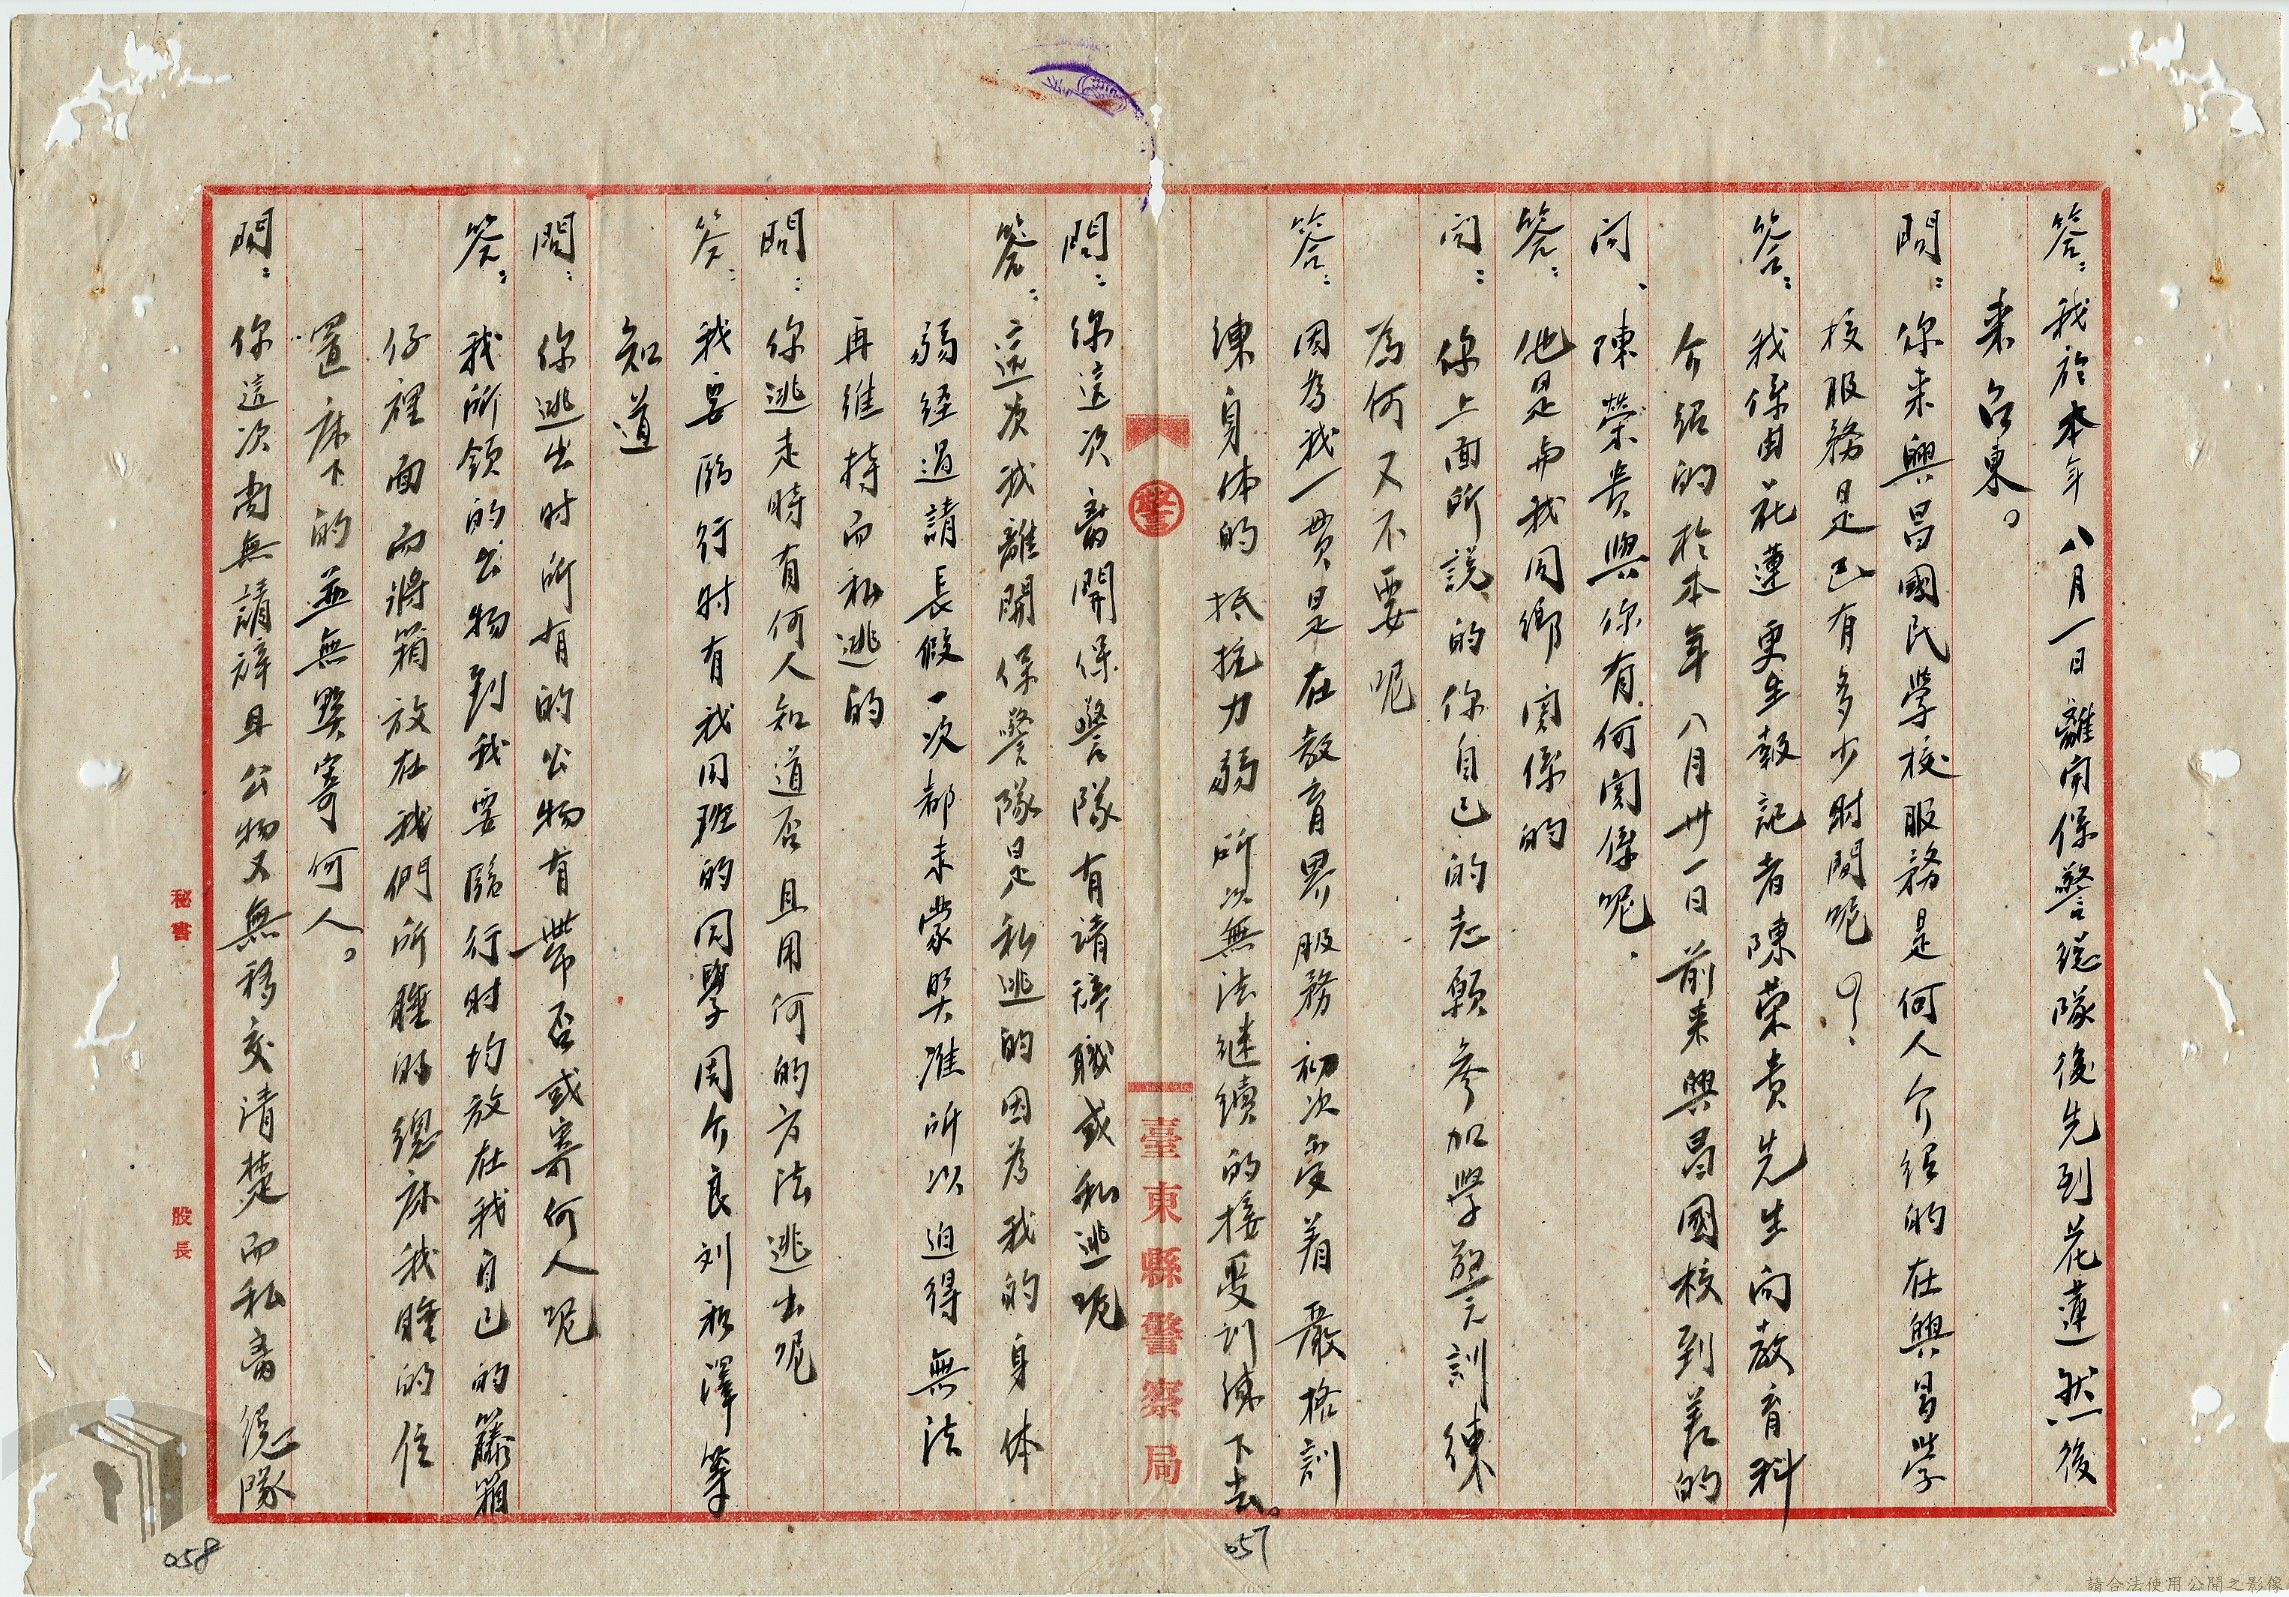 答：我於本年八月一日離開保警總隊後先到花蓮然後
来台東。
問：你来興昌國民学校服務是何人介绍的在興昌学
校服務是已有多少时間呢？
答：我係由花蓮更生報記者陳荣贵先生向教育科
介绍的於本年八月卅一日前来興昌國校到差的
问、陳荣贵與你有何関係呢．
答：他是與我同鄉関係的
问：你上面所説的你自己的志願参加学警訓練
為何又不要呢
答：因為我一贯是在教育界服務初次受着嚴格訓
練身体的抵抗力弱所以無法継續的接受訓練下去。
問：你這次离開保警隊有请辞職或私逃呢
答：這次我離開保警隊是私逃的因為我的身体
弱経過請長假一次都未蒙奨准所以迫得無法
再維持而私逃的
問：你逃走時有何人知道否且用何的方法逃出呢
答：我要臨行时有我同班的同學周介良刘裕澤等
知道
問：你逃出时所有的公物有帶否或寄何人呢
答：我所领的公物到我要臨行时均放在我自己的籐箱
仔裡面而將箱放在我們所睡的總床我睡的位
置床下的並無奨寄何人。
問：你這次尚無請辞且公物又無移交清楚而私离總隊
警
臺東縣警察局
秘書
股長
057
058
請合法使用公開之影像